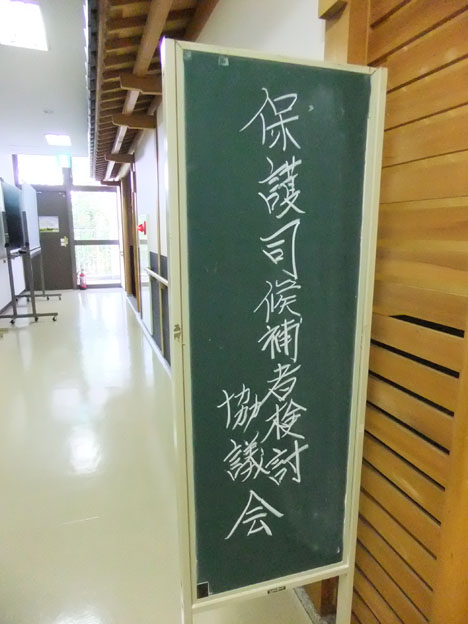 保護司候補者検討
協議会